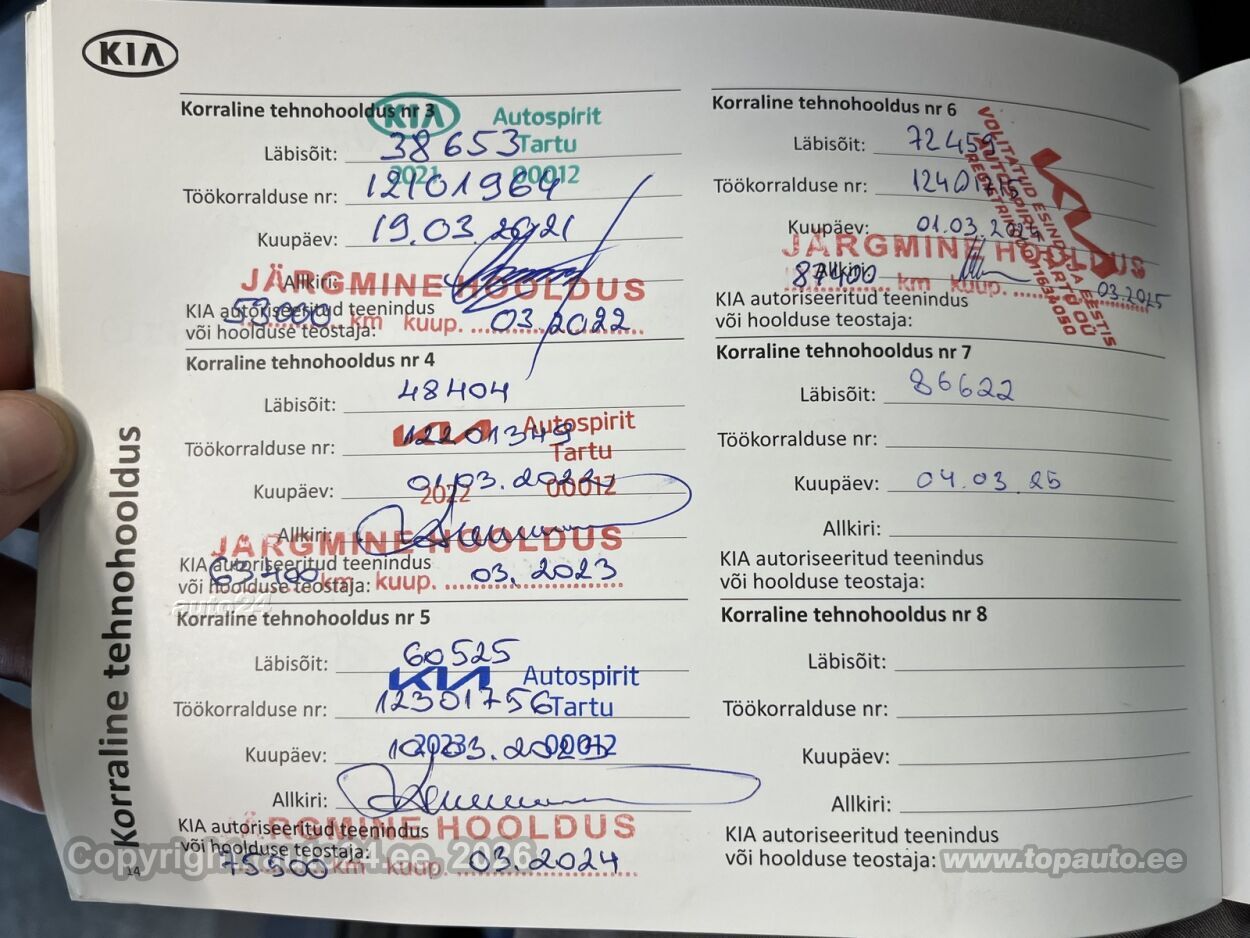 KIA
Korraline tehnohooldus nr 3
KIA Autospirit
Tartu
2021 00012
Läbisõit: 38653
Töökorralduse nr: 12101964
Kuupäev: 19.03.2021
Allkiri:
JÄRGMINE HOOLDUS
KIA autoriseeritud teenindus
või hoolduse teostaja:
km kuup. 03.2022
Korraline tehnohooldus nr 4
Läbisõit: 48404
KIA Autospirit
Tartu
2022 00012
Töökorralduse nr: 12201349
Kuupäev: 01.03.2022
Allkiri:
JÄRGMINE HOOLDUS
KIA autoriseeritud teenindus
või hoolduse teostaja:
63400 km kuup. 03.2023
auto24
Korraline tehnohooldus nr 5
Läbisõit: 60525
KIA Autospirit
Tartu
2023 00012
Töökorralduse nr: 12301756
Kuupäev: 10.03.2023
Allkiri:
JÄRGMINE HOOLDUS
KIA autoriseeritud teenindus
või hoolduse teostaja:
75500 km kuup. 03.2024
Korraline tehnohooldus nr 6
Läbisõit: 72459
Töökorralduse nr: 12401715
Kuupäev: 01.03.2024
Allkiri:
VOLITATUD ESINDAJA EESTIS
AUTOSPIRIT TARTU OÜ
KIA
JÄRGMINE HOOLDUS
87400 km kuup. 03.2025
KIA autoriseeritud teenindus
või hoolduse teostaja:
Korraline tehnohooldus nr 7
Läbisõit: 86622
Töökorralduse nr:
Kuupäev: 04.03.25
Allkiri:
KIA autoriseeritud teenindus
või hoolduse teostaja:
Korraline tehnohooldus nr 8
Läbisõit:
Töökorralduse nr:
Kuupäev:
Allkiri:
KIA autoriseeritud teenindus
või hoolduse teostaja:
Korraline tehnohooldus
14
www.topauto.ee